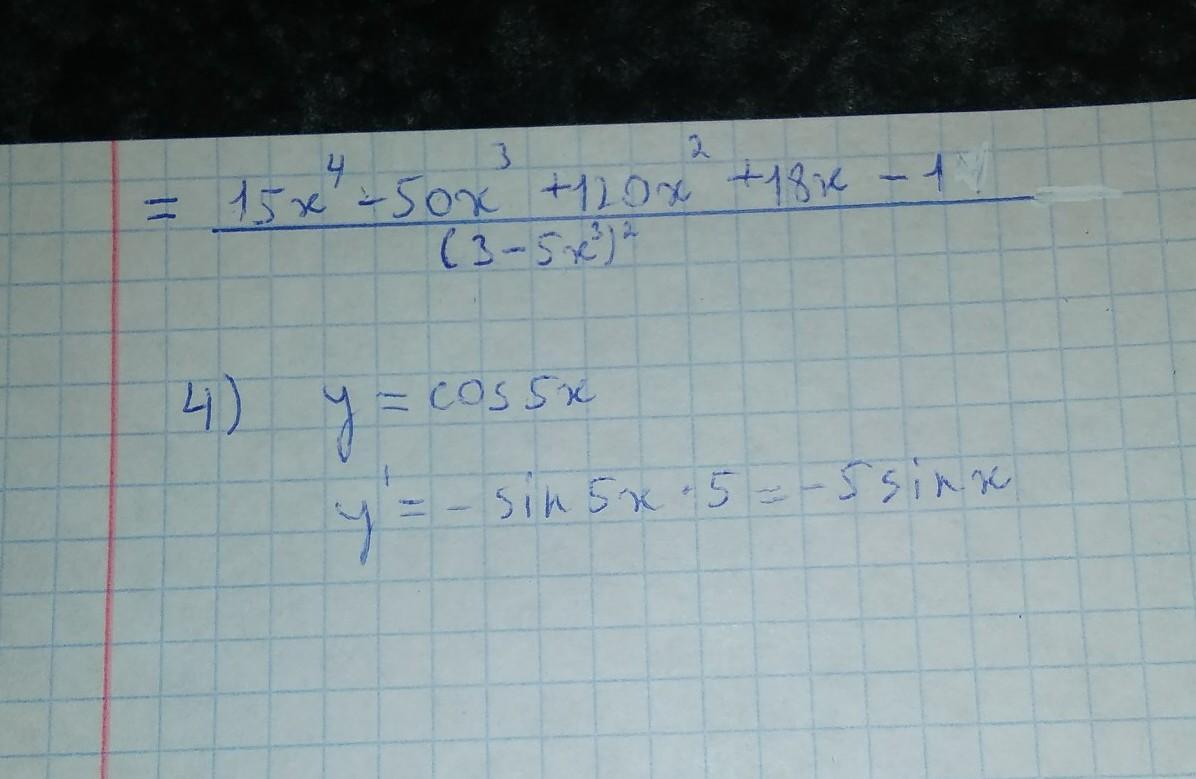 = (15x⁴ - 50x³ + 120x² + 18x - 1) / (3 - 5x³)²
4) y = cos5x
y' = - sin 5x · 5 = -5 sin x